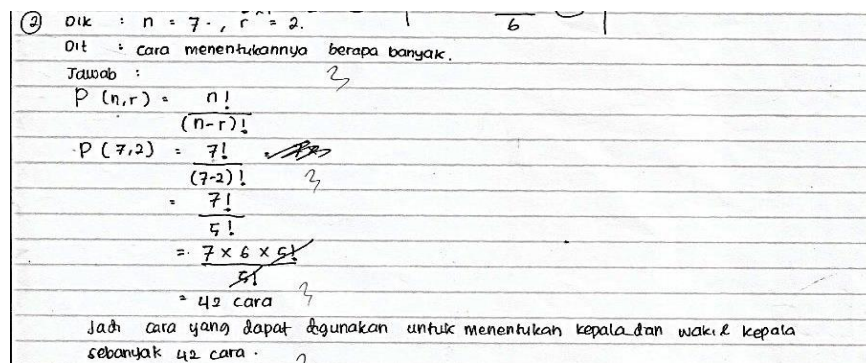 ② Dik : n = 7 . , r = 2.
6
Dit : cara menentukannya berapa banyak.
Jawab :
3
P (n,r) = n!
(n-r)!
P (7,2) = 7!
(7-2)!
3
= 7!
5!
= 7 x 6 x 5!
5!
= 42 cara
3
Jadi cara yang dapat digunakan untuk menentukan kepala dan wakil kepala
sebanyak 42 cara.